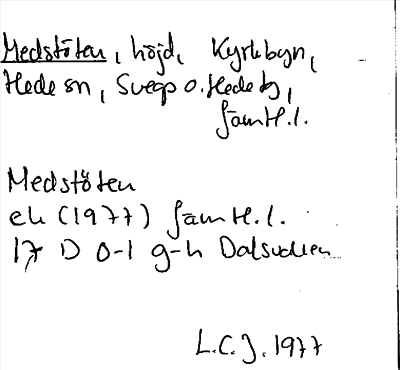 Medstöten, höjd, Kyrkbyn,
Hede sn, Svegs o. Hede tg,
Jämtl. l.
Medstöten
ek (1977) Jämtl. l.
17 D 0-1 g-h
L.C.J. 1977